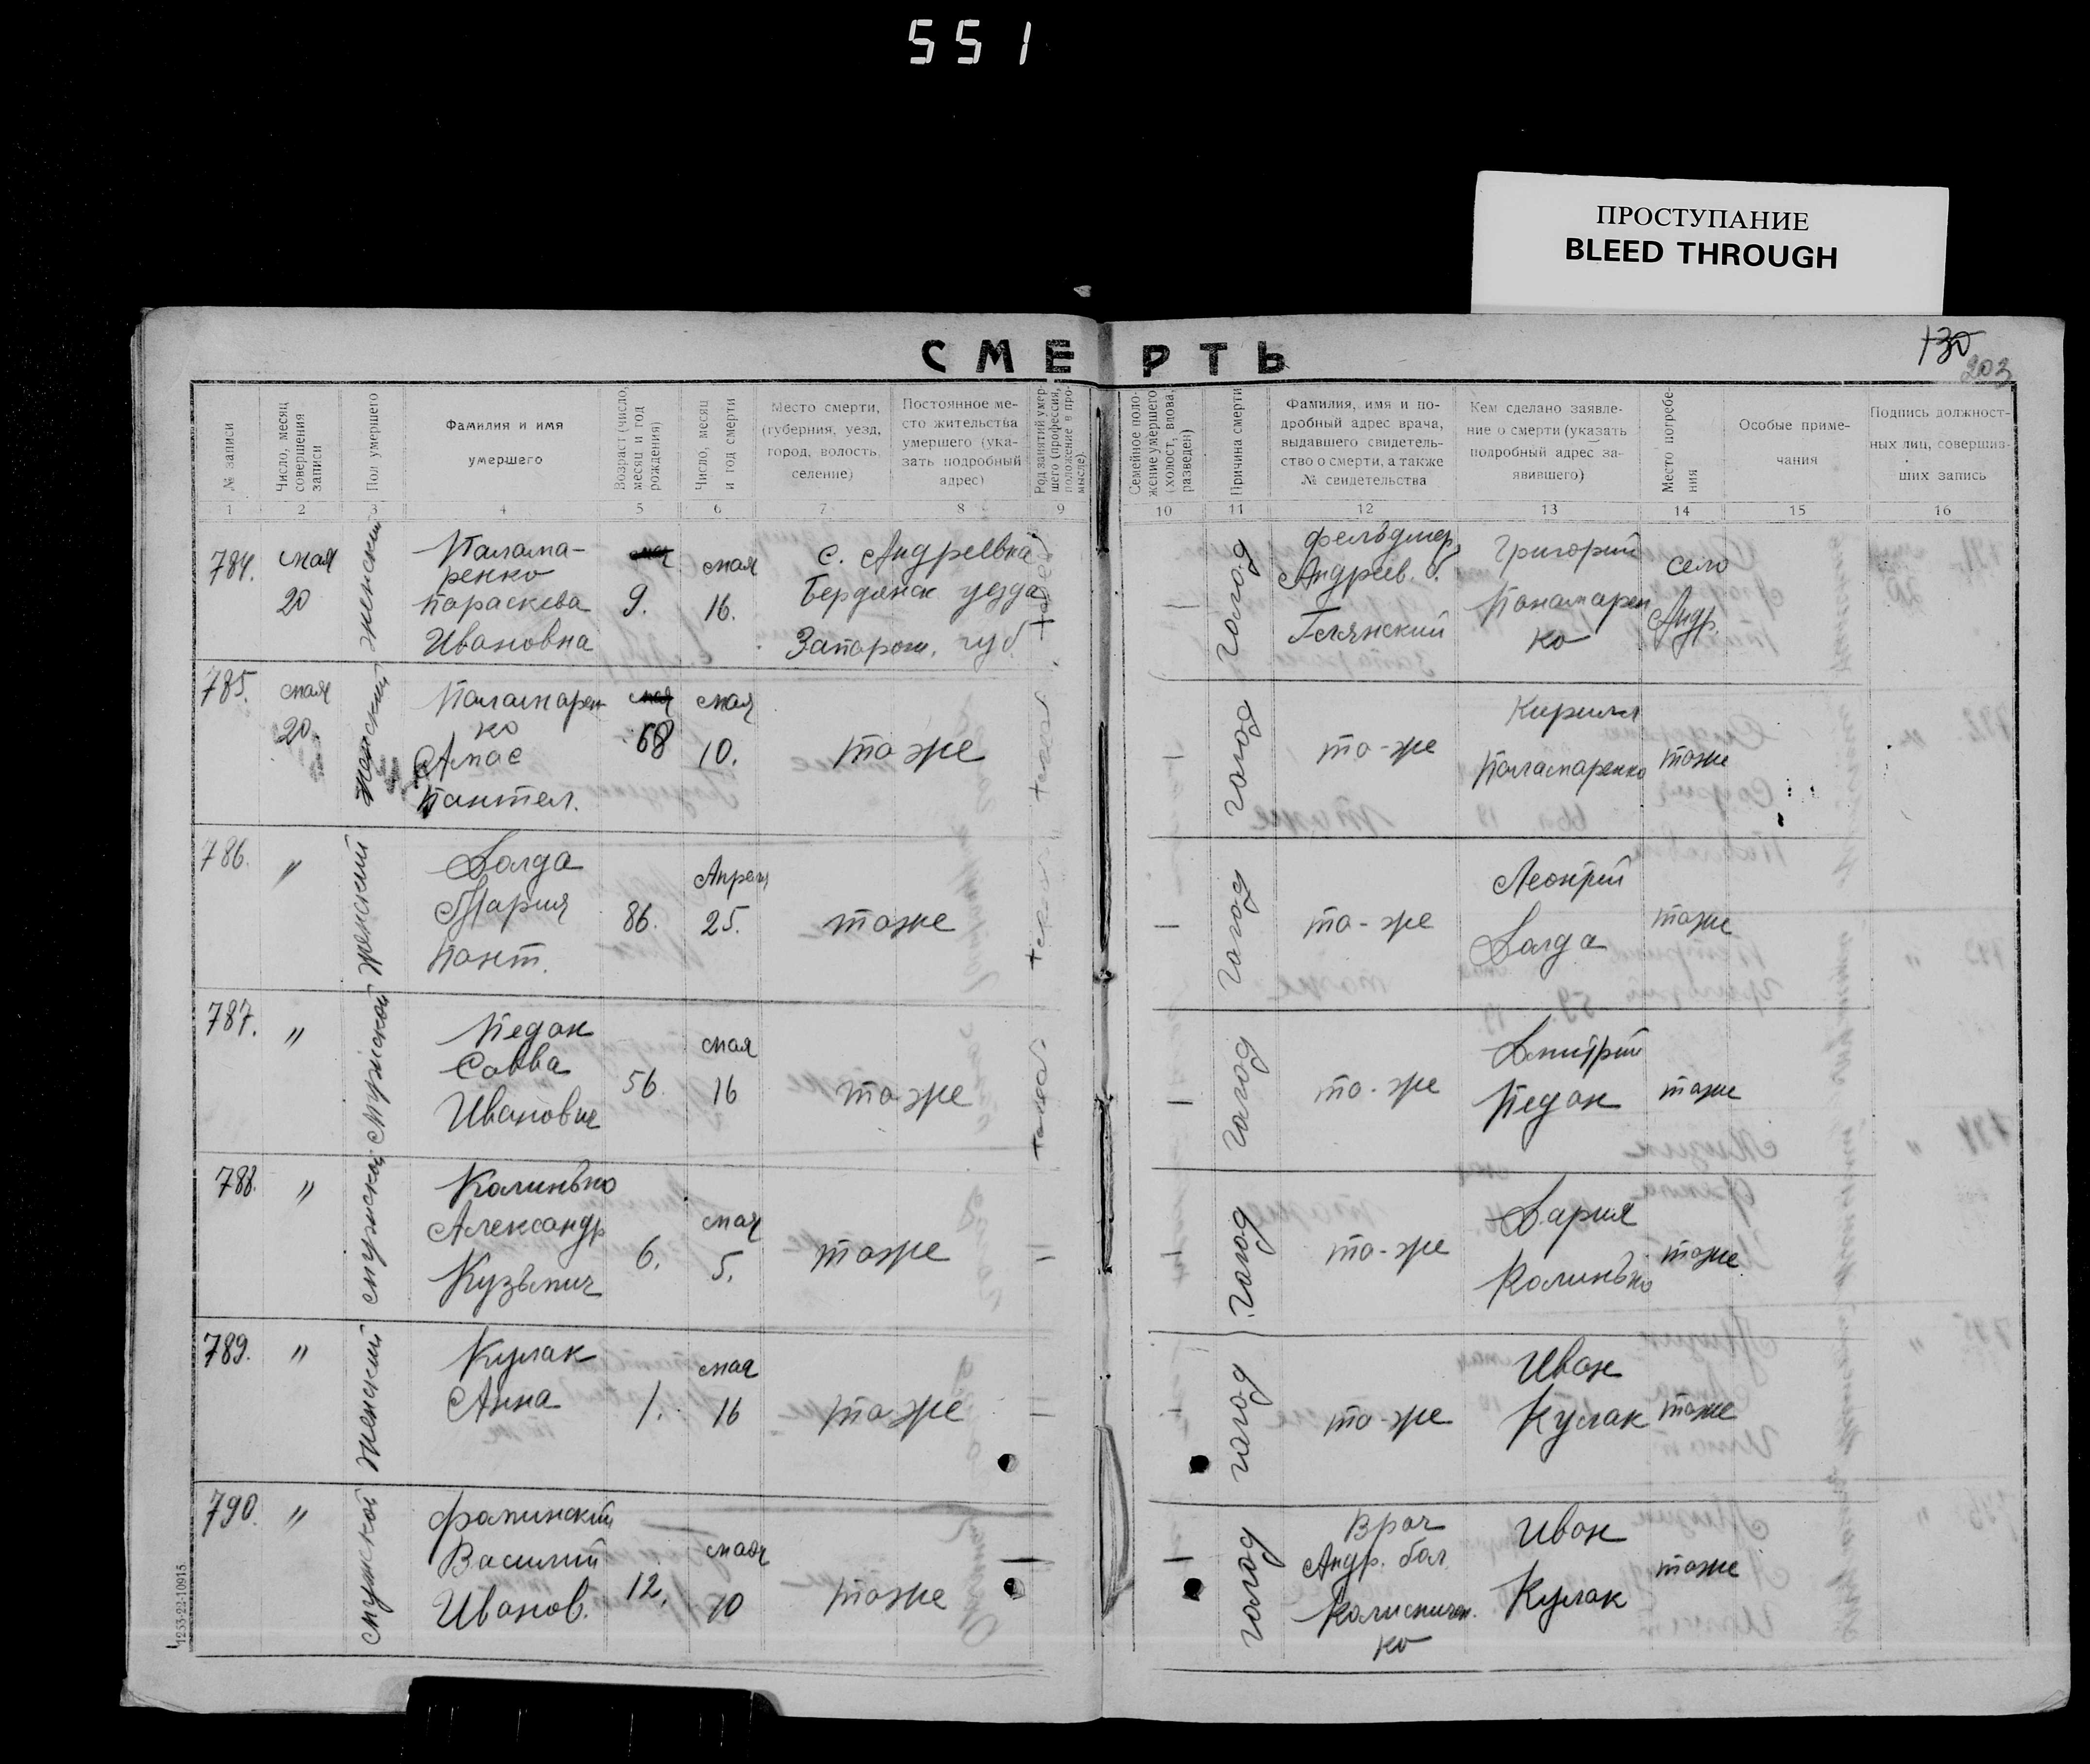 551
ПРОСТУПАНИЕ
BLEED THROUGH
СМЕРТЬ
130
203
№ записи
Число, месяц совершения записи
Пол умершего
Фамилия и имя
умершего
Возраст (число, месяц и год рождения)
Число, месяц и год смерти
Место смерти,
(губерния, уезд,
город, волость,
селение)
Постоянное ме-
сто жительства
умершего (ука-
зать подробный
адрес)
Род занятий умер-
шего (профессия,
положение в про-
мысле).
Семейное поло-
жение умершего
(холост, вдова,
разведен)
Причина смерти
Фамилия, имя и по-
дробный адрес врача,
выдавшего свидетель-
ство о смерти, а также
№ свидетельства
Кем сделано заявле-
ние о смерти (указать
подробный адрес за-
явившего)
Место погребе-
ния
Особые приме-
чания
Подпись должност-
ных лиц, совершив-
ших запись
1 2 3 4 5 6 7 8 9 10 11 12 13 14 15 16
784.
мая
20
женский
Палама-
ренко
Параскева
Ивановна
9.
мая
16.
с. Андреевка
Бердянск уезда
Запорож. губ.
голод
фельдшер
Андреев. б.
Григорий
Понамарен
ко
село
Андр.
785.
мая
20.
женский
Паламарен
ко
Пантел.
68
мая
10.
то же
голод
то-же
Кирилл
Паламаренко
тоже
786.
"
женский
Долда
Мария
Пант.
86.
Апреля
25.
тоже
голод
то-же
Леонтий
Долда
тоже
787.
"
мужской
Педак
Савва
Иванович
56.
мая
16
то же
голод
то-же
Дмитрий
Педак
тоже
788.
"
мужской
Калинько
Александр
Кузьмич
6.
мая
5.
тоже
голод
то-же
Дария
Калинько
тоже
789.
"
женский
Кулак
Анна
1.
мая
16
то же
голод
то-же
Иван
Кулак
тоже
790.
"
мужской
Василий
Иванов.
12.
мая
10
тоже
голод
Врач
Андр. бол.
Колисничен.
ко
Иван
Кулак
тоже
1253-22-10915